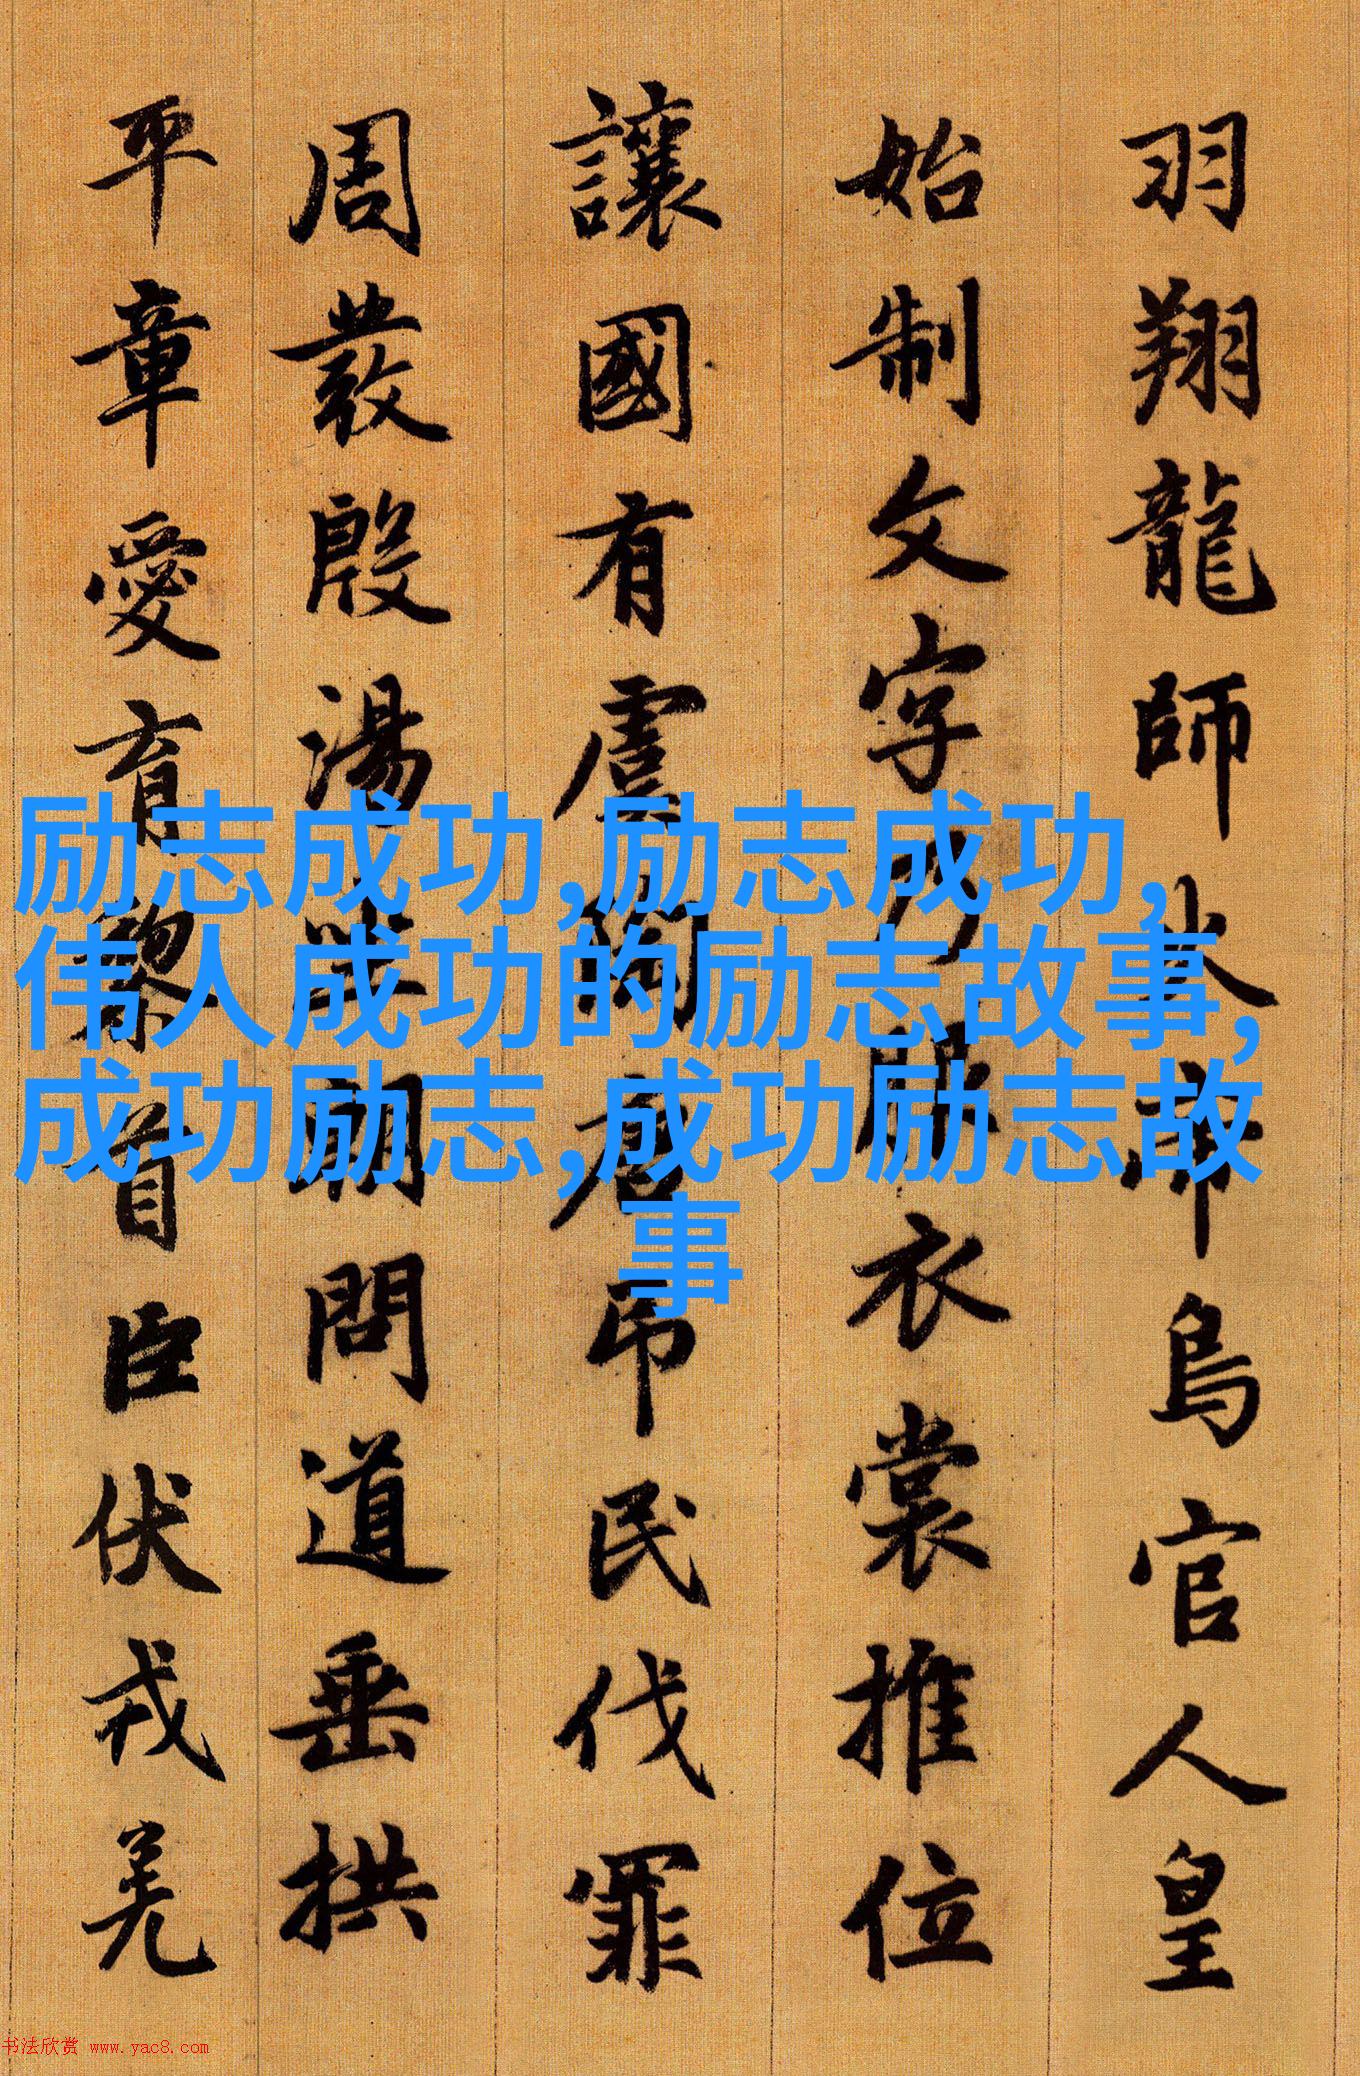 羽翔龍師火帝鳥官人皇
始制文字乃服衣裳推位
讓國有虞陶唐吊民伐罪
周發殷湯坐朝問道垂拱
平章愛育黎首臣伏戎羌
励志成功,励志成功,
伟人成功的励志故事,
成功励志,成功励志故
事
书法欣赏 www.yac8.com